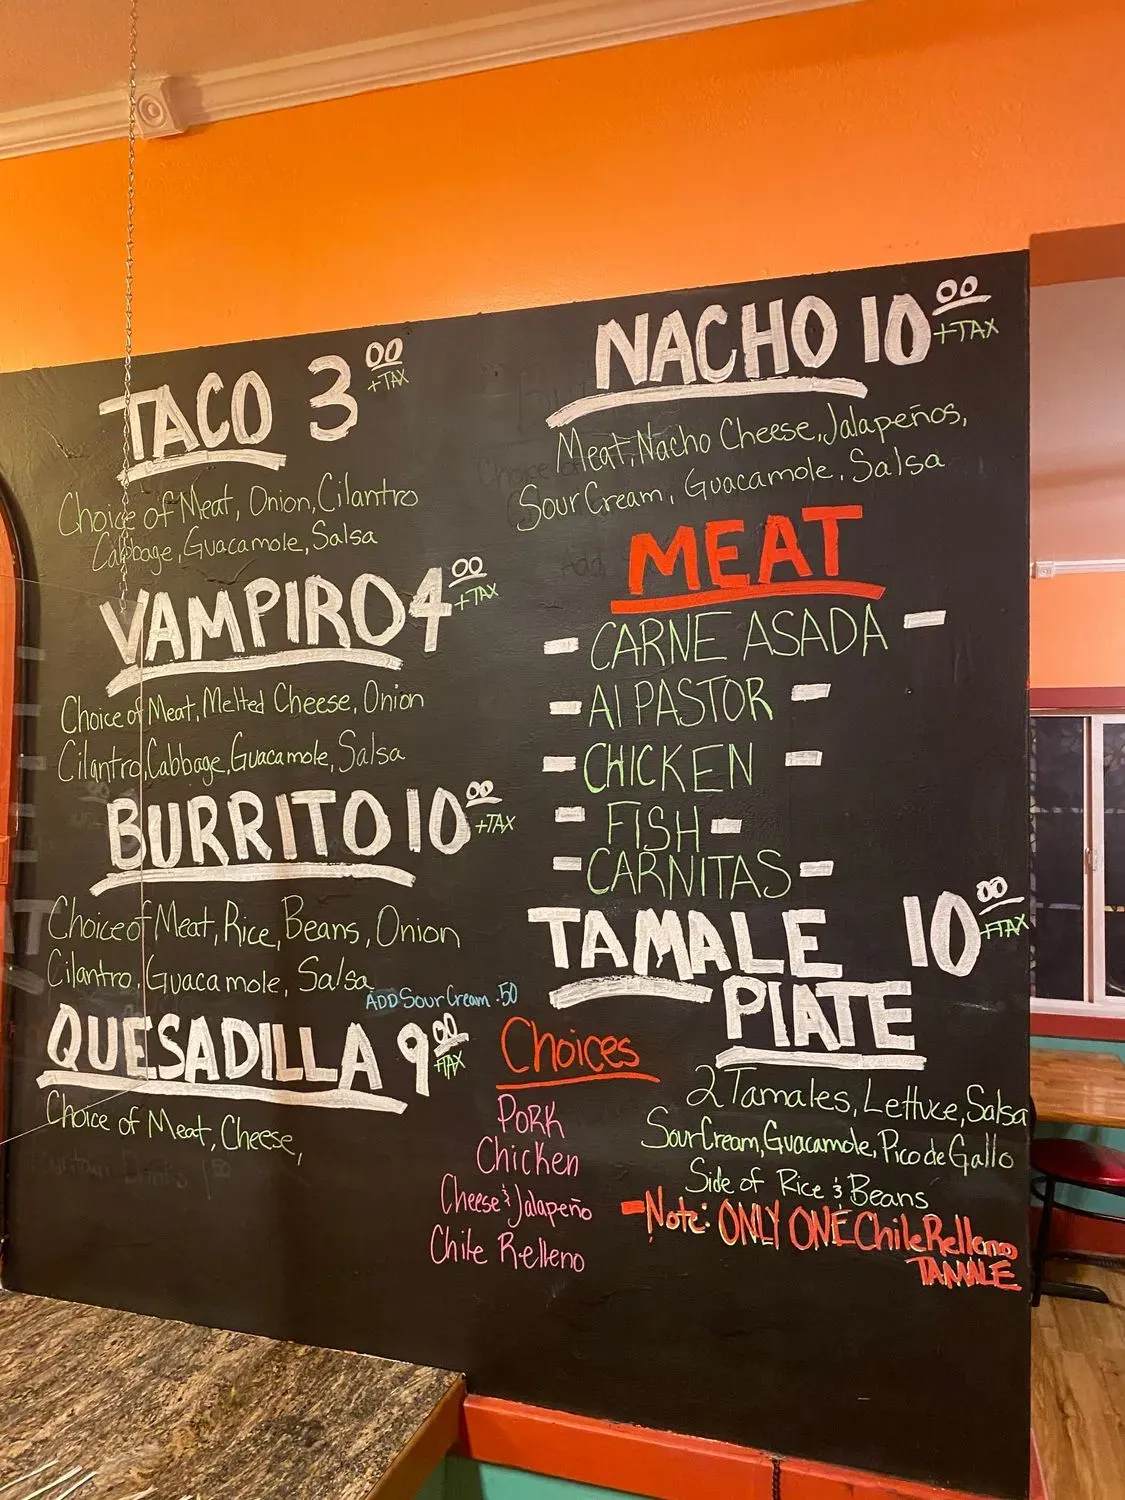 TACO 3 00 +TAX
Choice of Meat, Onion, Cilantro
Cabbage, Guacamole, Salsa
VAMPIRO 4 00 +TAX
Choice of Meat, Melted Cheese, Onion
Cilantro, Cabbage, Guacamole, Salsa
BURRITO 10 00 +TAX
Choice of Meat, Rice, Beans, Onion
Cilantro, Guacamole, Salsa
ADD Sour Cream .50
QUESADILLA 9 00 +TAX
Choice of Meat, Cheese,
NACHO 10 00 +TAX
Meat, Nacho Cheese, Jalapeños,
Sour Cream, Guacamole, Salsa
MEAT
- CARNE ASADA -
- Al PASTOR -
- CHICKEN -
- FISH -
- CARNITAS -
TAMALE 10 00 +TAX
PlATE
2 Tamales, Lettuce, Salsa
Sour Cream, Guacamole, Pico de Gallo
Side of Rice & Beans
- Note: ONLY ONE Chile Relleno
TAMALE
Choices
Pork
Chicken
Cheese & Jalapeño
Chile Relleno